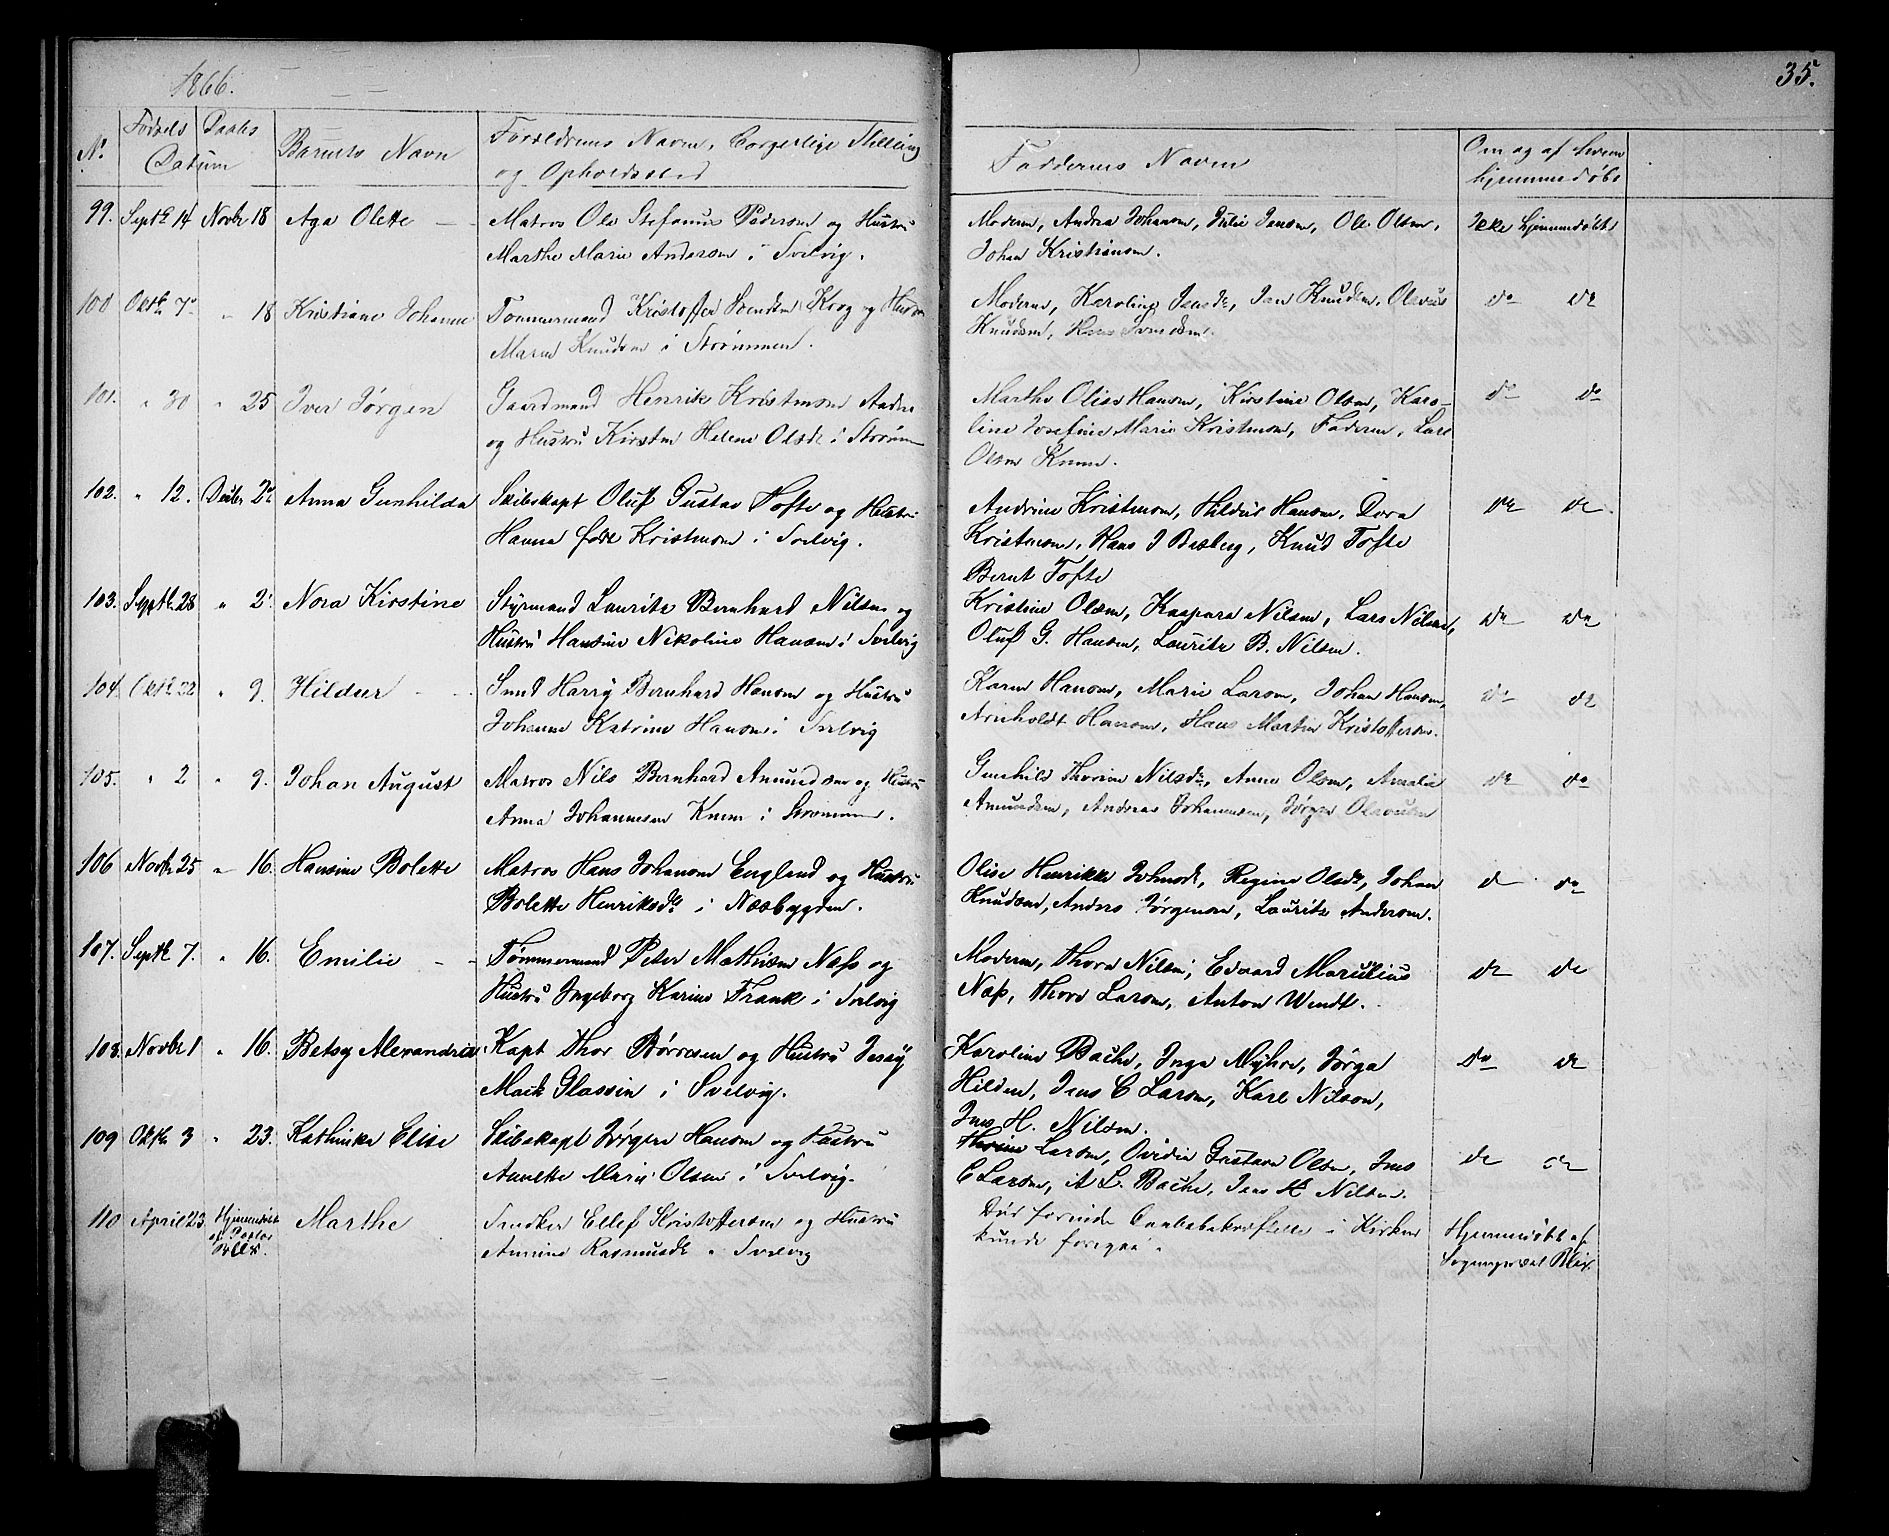 1866.
35.
No. Fødsels Daabs Datum Barnets Navn Forældrenes Navne, borgerlige Stilling
og Opholdssted
Faddernes Navne
Om og af hvem
hjemmedøbt
99. Septb 14 Novbr 18 Aga Olette Matros Ole Stefanus Pedersen og Hustru
Marthe Marie Andersen i Svelvig.
Moderen, Andrea Johansen, Julie Jensen, Ole Olsen,
Johan Kristiansen.
Ikke hjemmedøbt
100 Oktb 7 " 18 Kristiane Johanne Tømmermand Kristoffer Svendsen Krog og Hustru
Maren Knudsen i Strømmen.
Moderen, Karoline Jensdr, Jen Knudsen, Olavus
Knudsen, Hans Svendsen.
do do
101. " 30 " 25 Iver Jørgen Gaardmand Henrik Kristensen
og Hustru Kirsten Helene Olsdr i Strømm
Marthe Olise Hansen, Kirstine Olsen, Karo-
line Josefine Marie Kristensen, Faderen, Lars
Olsen Knem.
do do
102. " 12. Decbr 2 Anna Gunhilda Skibskapt Oluf Gustav Tofte og Hustru
Hanna født Kristensen i Svelvig.
Andrine Kristensen, Hildur Hansen, Dora
Kristensen, Hans J Braberg, Knud Tofte
Bernt Tofte
do do
103. Septb. 28 " 2. Nora Kirstine Styrmand Lauritz Bernhard Nilsen og
Hustru Hansine Nikoline Hansen i Svelvig
Kristine Olsen, Kaspara Nilsen, Lars Nilsen,
Oluf G. Hansen, Lauritz B. Nilsen.
do do
104. Oktb 22 " 9. Hildur Smed Harry Bernhard Hansen og Hustru
Johanne Katrine Hansen i Svelvig
Karen Hansen, Marie Larsen, Johan Hansen,
Arnholdt Hansen, Hans Martin Kristoffersen.
do do
105. " 2 " 9. Johan August Matros Nils Bernhard Amundsen og Hustru
Anna Johannesen Knem i Strømmen.
Gunhild Thorine Nilsdr, Anne Olsen, Amalia
Amundsen, Andreas Johannesen, Jørgen Olavesen
do do
106 Novbr 25 " 16. Hansine Bolette Matros Hans Johansen England og Hustru
Bolette Henriksdr i Næsbygden.
Olise Henrikke Johnsdr, Regine Olsdr, Johan
Knudsen, Anders Jørgensen, Lauritz Andersen.
do do
107. Septb 7. " 16. Emilie Tømmermand Peter Mathisen Næss og
Hustru Ingeborg Karine Frank i Svelvig
Moderen, Thora Nilsen, Edvard Marulius
Næss, Thora Larsen, Anton Wendt.
do do
108. Novbr 1 " 16. Betsy Alexandria Kapt Thor Børresen og Hustru Jessy
Mack Glassin i Svelvig.
Karoline Bache, Inga Myhre, Jørga
Hilden, Jens C Larsen, Karl Nilsen,
Jens H. Nilsen.
do do
109 Oktb 3 " 23. Kathinka Elise Skibskapt Jørgen Hansen og Hustru
Annette Marie Olsen i Svelvig.
Thorine Larsen, Ovidia Gustava Olsen, Jens
C Larsen, A L. Bache, Jens H Nilsen.
do do
110 April 23. Hjemmedøbt
af Pastor
Blix. Marthe Snedker Ellef Kristoffersen og Hustru
Annine Rasmusdr i Svelvig
Død forinden Daabsbekræftelse i Kirken
kunde foregaa.
Hjemmedøbt af
Sognepræst Blix.